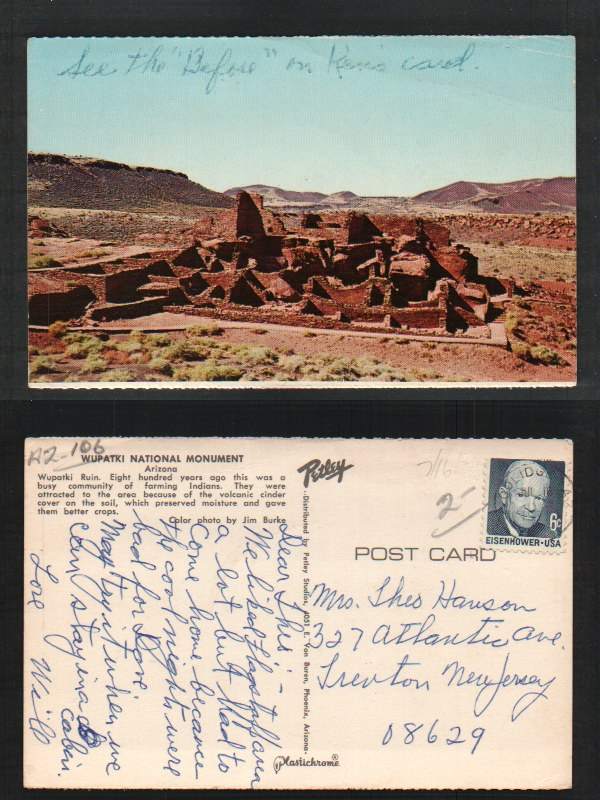 See the "Before" on Ken's card.
AZ-106
WUPATKI NATIONAL MONUMENT
Arizona
Wupatki Ruin. Eight hundred years ago this was a
busy community of farming Indians. They were
attracted to the area because of the volcanic cinder
cover on the soil, which preserved moisture and gave
them better crops.
Color photo by Jim Burke
Dear Thes -
We liked Flagstaff area
a lot but had to
come home because
the cool nights were
bad for Love.
May try it when we
can stay in a
cabin.
Love Will
Petley
Distributed by Petley Studios, 4051 E. Van Buren, Phoenix, Arizona
Plastichrome®
2-
POST CARD
6c
EISENHOWER·USA
Mrs. Thes Hanson
327 Atlantic Ave.
Trenton New Jersey
08629